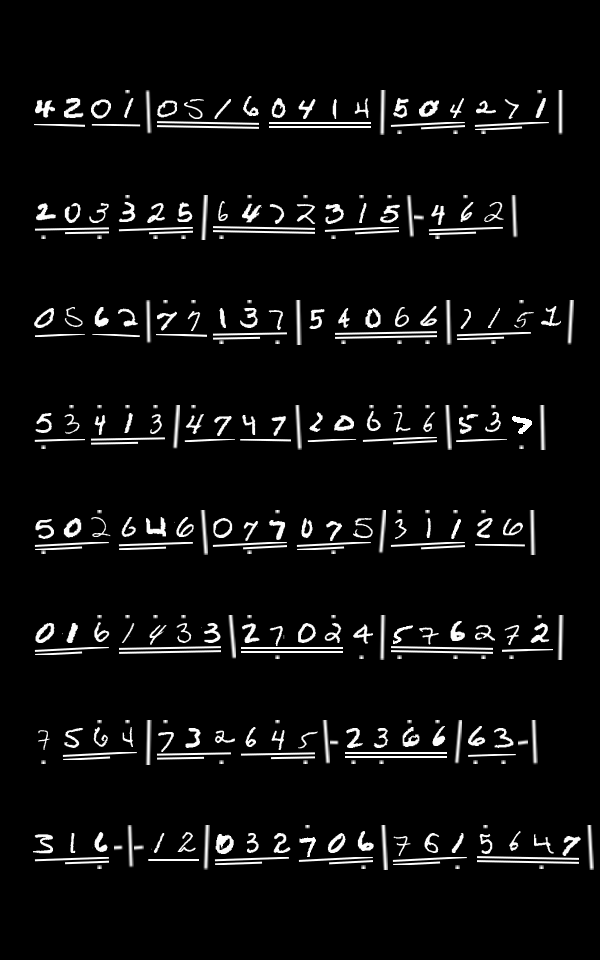 4201|05160414|504271
203325|6472315|-462
0562|77137|54066|7151
53413|4747|20626|537
502646|077075|31126
0161433|27024|576272
7564|732645|-2366|63-
316-|-12|032706|7615647|